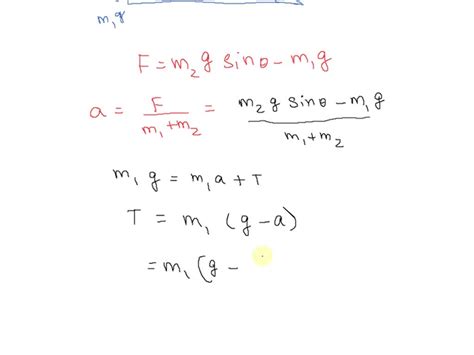 m₁g
F = m₂g sinθ − m₁g
a = F/(m₁+m₂) = (m₂g sinθ − m₁g)/(m₁+m₂)
m₁g = m₁a + T
T = m₁ (g − a)
= m₁ (g −